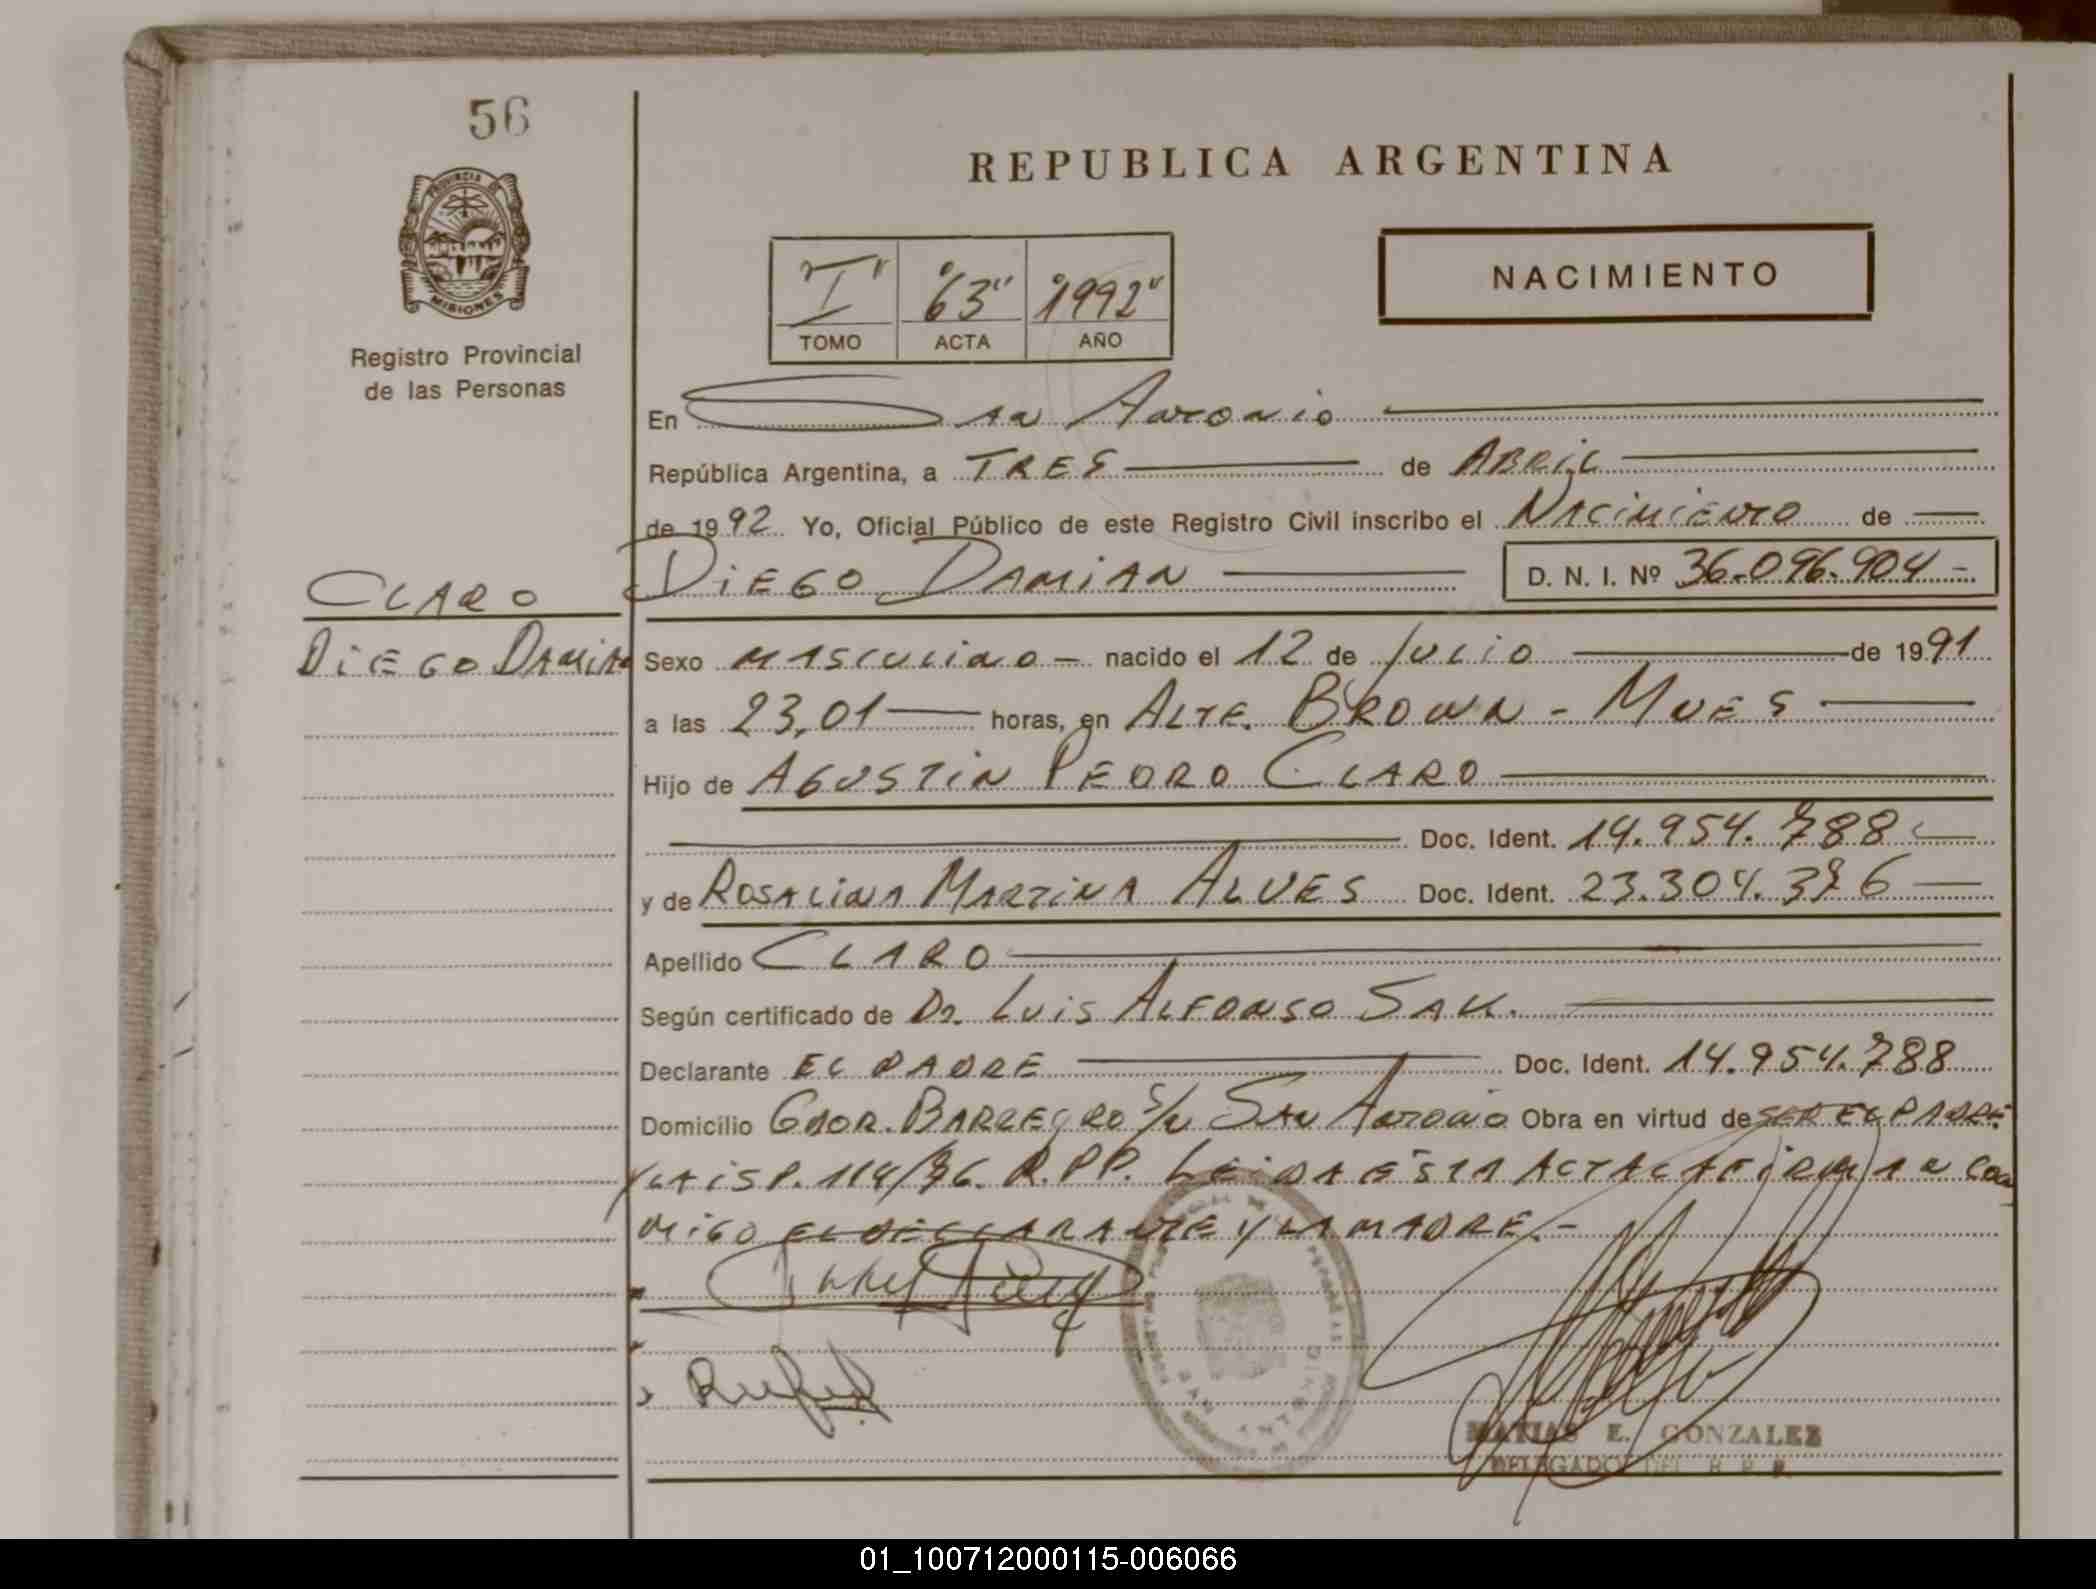 56
REPUBLICA ARGENTINA
PROVINCIA DE
MISIONES
Registro Provincial
de las Personas
"I" "63" "1992"
TOMO ACTA AÑO
NACIMIENTO
En San Antonio
República Argentina, a TRES de ABRIL
de 1992 Yo, Oficial Público de este Registro Civil inscribo el NACIMIENTO de
DIEGO DAMIAN D. N. I. Nº 36.096.904-
CLARO
DIEGO DAMIAN
Sexo MASCULINO - nacido el 12 de JULIO de 1991
a las 23,01 horas, en ALTE. BROWN - MNES
Hijo de AGUSTIN PEDRO CLARO
Doc. Ident. 14.954.788
y de ROSALINA MARTINA ALVES Doc. Ident. 23.304.376
Apellido CLARO
Según certificado de Dr. LUIS ALFONSO SAK.
Declarante EL PADRE Doc. Ident. 14.954.788
Domicilio GDOR. BARREYRO S/N SAN ANTONIO Obra en virtud de SER EL PADRE
Y LA DISP. 114/76. R.PP. LEIDA ESTA ACTA LA FIRMAN CON
MIGO EL DECLARANTE Y LA MADRE.-
SAN ANTONIO
MATIAS E. GONZALEZ
DELEGADO DEL R. P. P.
01_100712000115-006066